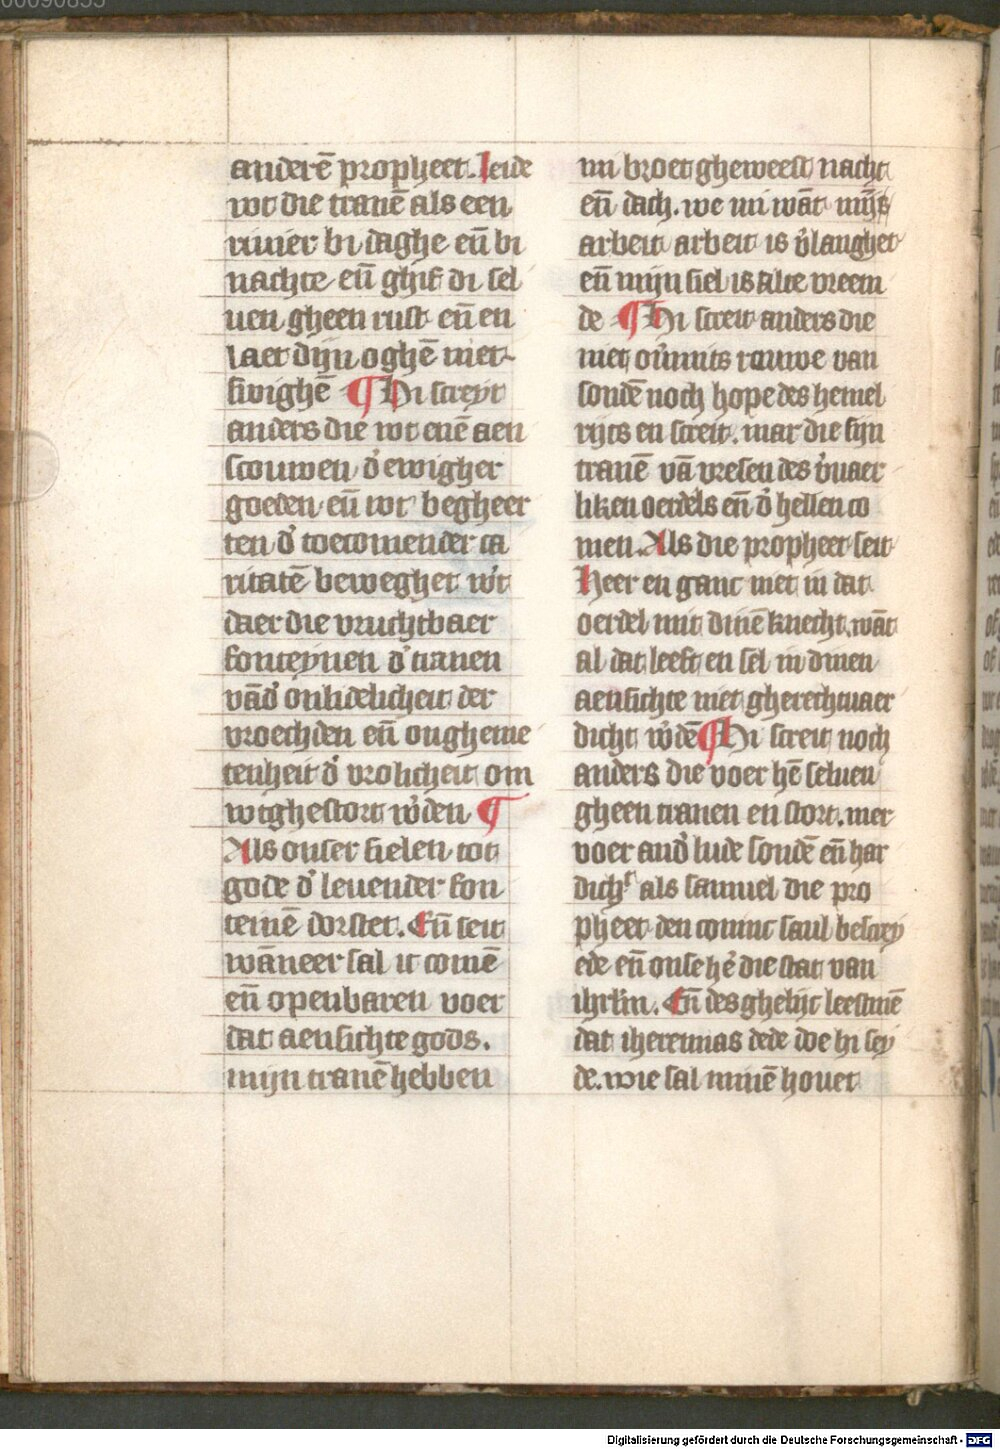 anderē propheet. Leide
wt die tranē als een
riuier bi daghe eñ bi
nachte eñ ghif di sel
uen gheen rust eñ en
laet dijn oghē niet
swighē ¶ Hi screyt
anders die wt enē aen
scouwen d' ewigher
goeden eñ wt begheer
ten d' toecomender ca
ritatē beweghet w't
daer die vruchtbaer
fonteynen d' tranen
vād' onlidelicheit der
vroechden eñ ongheme
tenheit d' vrolicheit om
wtghestort w'den ¶
Als onser sielen tot
gode d' leuender fon
teinē dorstet. Eñ seit
wāneer sal ic comē
eñ openbaren voer
dat aensichte gods.
mijn tranē hebben
mi broet gheweest nacht
eñ dach. we mi wāt mijn
arbeit arbeit is v'langhet
eñ mijn siel is alte vreem
de ¶ Hi screit anders die
niet ouermits rouwe van
sondē noch hope des hemel
rijcs en screit. mar die sijn
tranē vā vresen des v'uaer
liken oerdels eñ d' hellen co
men. Als die propheet seit
Heer en ganc niet in dat
oerdel mit dinē knecht. wāt
al dat leeft en sel in dinen
aensichte niet gherechtuaer
dicht w'dē ¶ Hi screit noch
anders die voer hē seluen
gheen tranen en stort. mer
voer and' lude sondē eñ har
dich<sup>t</sup> als samuel die pro
pheet den coninc saul bescrey
ede eñ onse hē die stat van
ihrl'm. Eñ des ghelijc leestmē
dat iheremias dede doe hi sey
de. wie sal minē houet
00090855
Digitalisierung gefördert durch die Deutsche Forschungsgemeinschaft - DFG